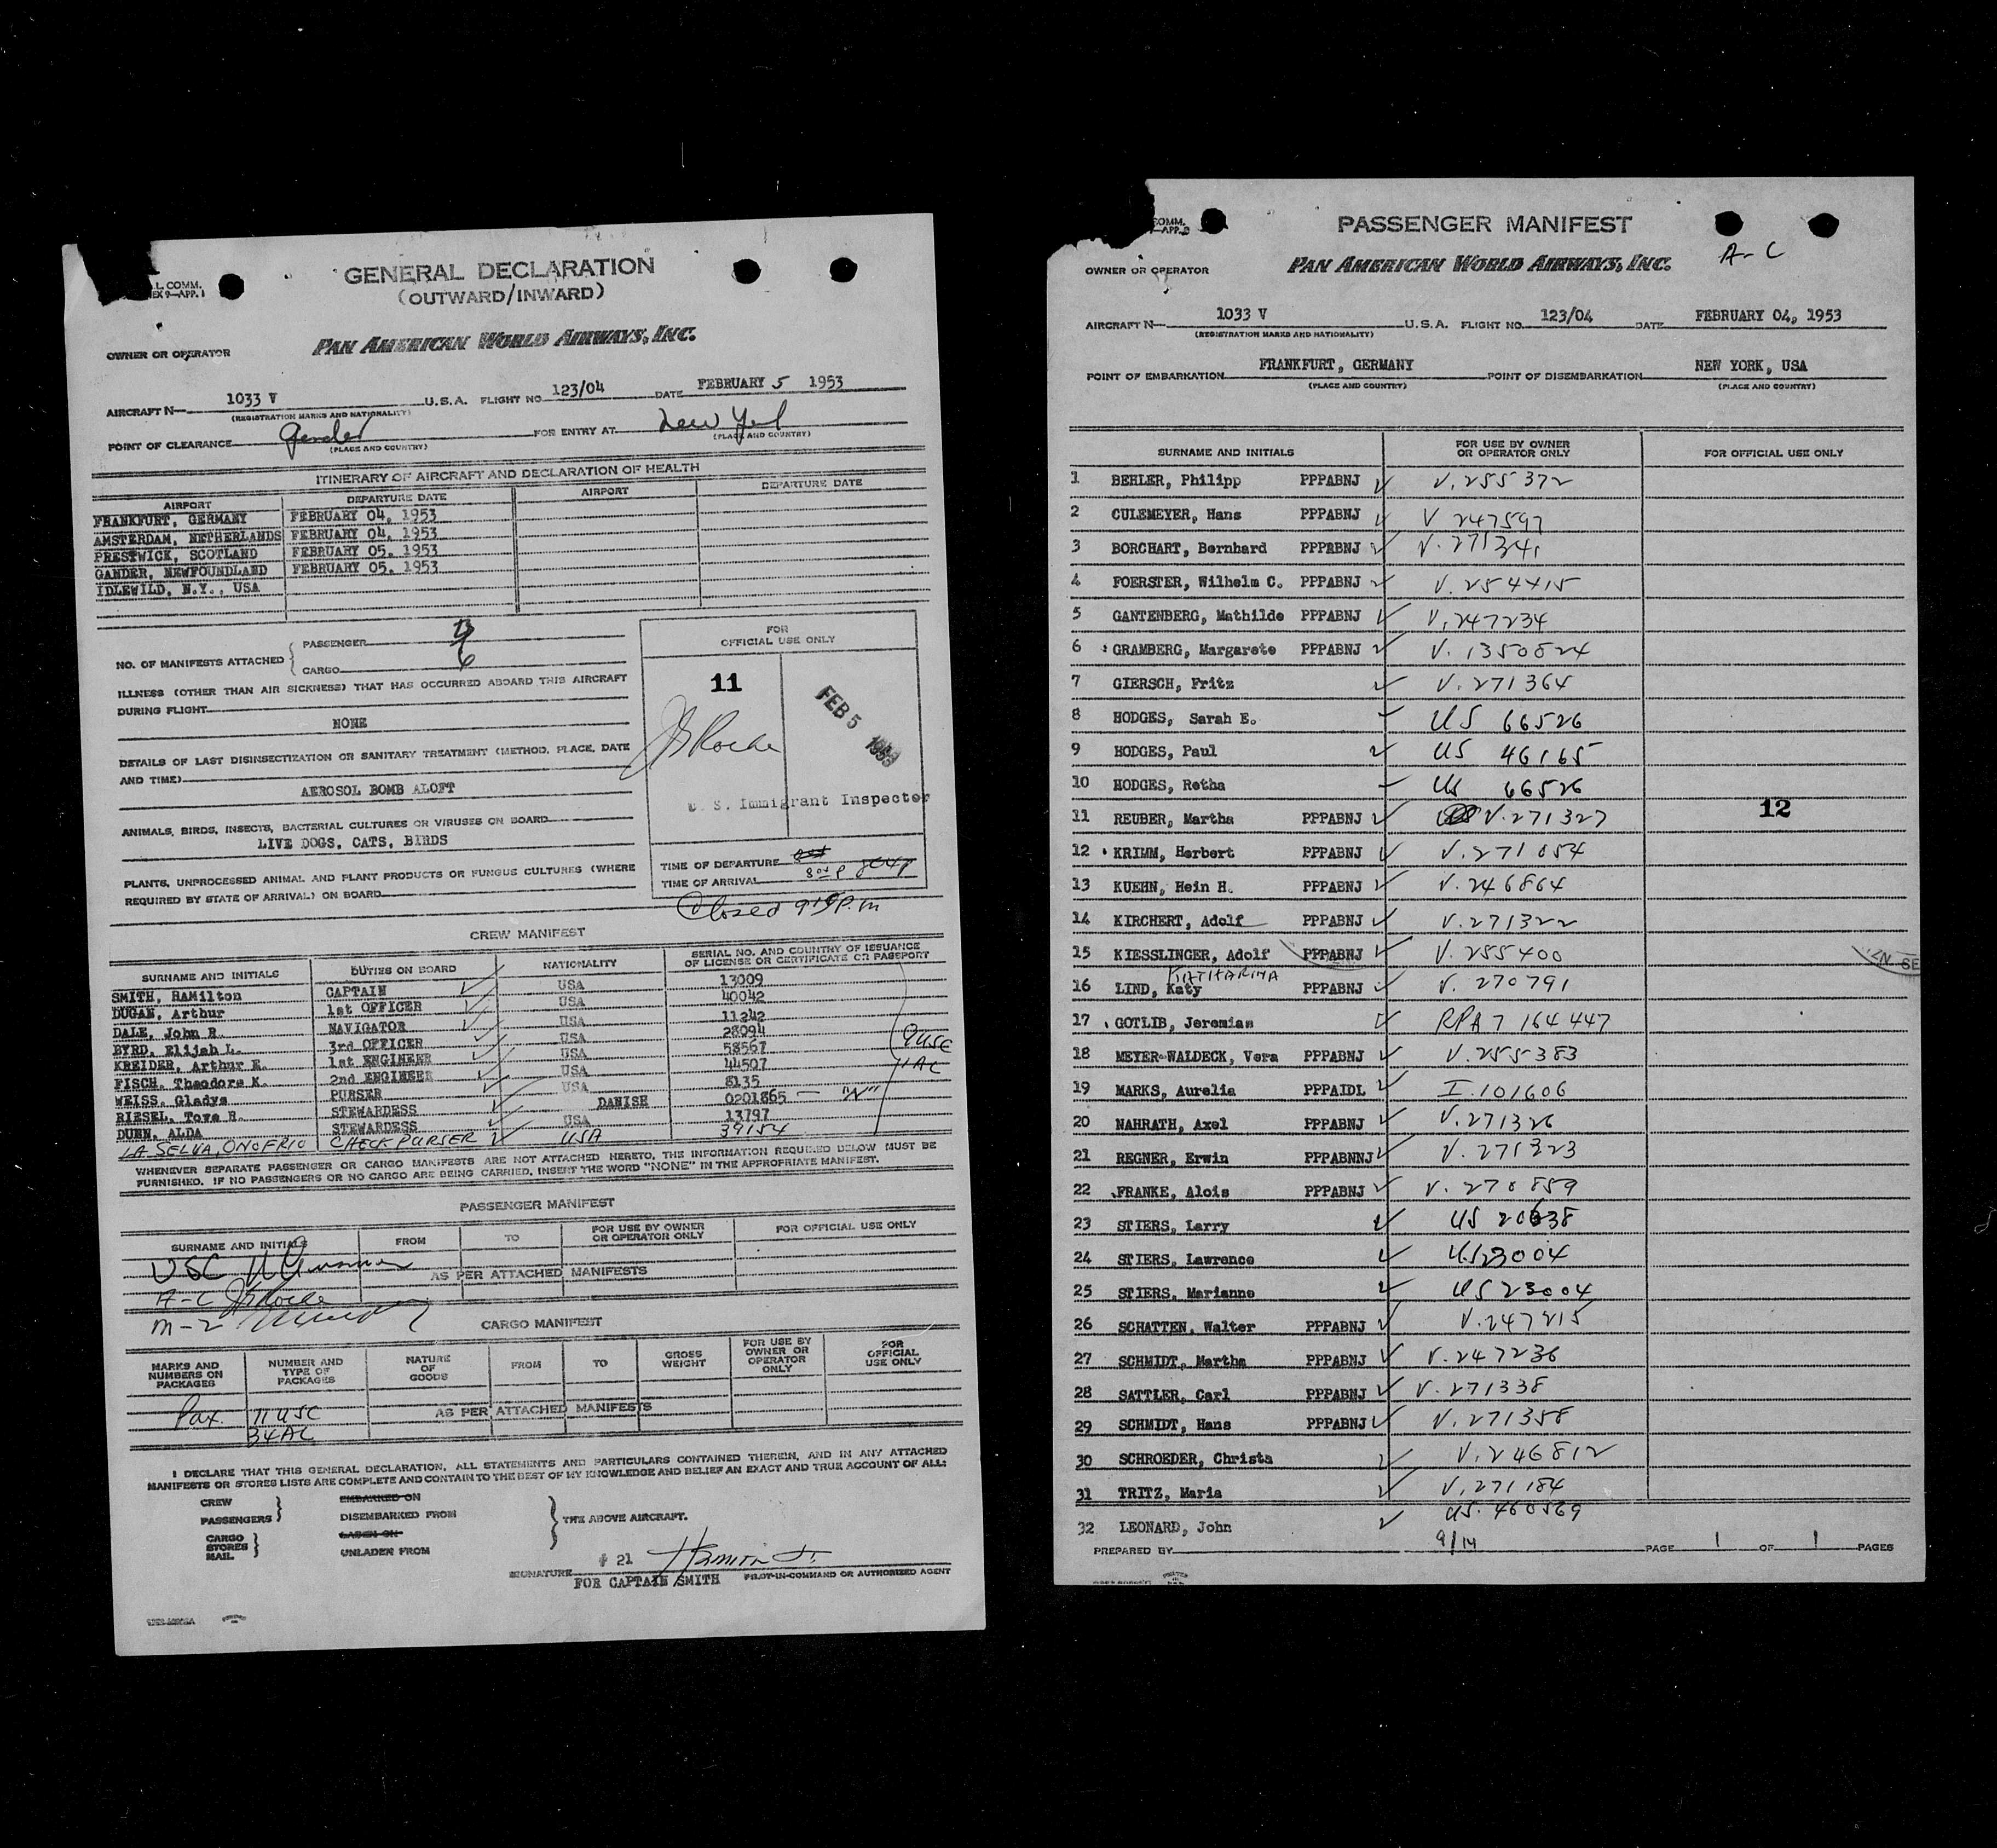 L. COMM.
EX 9—APP. 1
GENERAL DECLARATION
(OUTWARD/INWARD)
OWNER OR OPERATOR
PAN AMERICAN WORLD AIRWAYS, INC.
AIRCRAFT N— 1033 V U.S.A. FLIGHT NO. 123/04 DATE FEBRUARY 5 1953
(REGISTRATION MARKS AND NATIONALITY)
POINT OF CLEARANCE Gander FOR ENTRY AT New York
(PLACE AND COUNTRY) (PLACE AND COUNTRY)
ITINERARY OF AIRCRAFT AND DECLARATION OF HEALTH
AIRPORT DEPARTURE DATE AIRPORT DEPARTURE DATE
FRANKFURT, GERMANY FEBRUARY 04, 1953
AMSTERDAM, NETHERLANDS FEBRUARY 04, 1953
PRESTWICK, SCOTLAND FEBRUARY 05, 1953
GANDER, NEWFOUNDLAND FEBRUARY 05, 1953
IDLEWILD, N.Y., USA
NO. OF MANIFESTS ATTACHED
PASSENGER
CARGO 6
ILLNESS (OTHER THAN AIR SICKNESS) THAT HAS OCCURRED ABOARD THIS AIRCRAFT
DURING FLIGHT
NONE
DETAILS OF LAST DISINSECTIZATION OR SANITARY TREATMENT (METHOD, PLACE, DATE
AND TIME)
AEROSOL BOMB ALOFT
ANIMALS, BIRDS, INSECTS, BACTERIAL CULTURES OR VIRUSES ON BOARD
LIVE DOGS, CATS, BIRDS
PLANTS, UNPROCESSED ANIMAL AND PLANT PRODUCTS OR FUNGUS CULTURES (WHERE
REQUIRED BY STATE OF ARRIVAL) ON BOARD
FOR
OFFICIAL USE ONLY
11
FEB 5 1953
JJ Roche
U. S. Immigrant Inspector
TIME OF DEPARTURE
TIME OF ARRIVAL
Closed 9 15 P.m
CREW MANIFEST
SURNAME AND INITIALS DUTIES ON BOARD NATIONALITY SERIAL NO. AND COUNTRY OF ISSUANCE
OF LICENSE OR CERTIFICATE OR PASSPORT
SMITH, HAMilton CAPTAIN USA 13009
DUGAN, Arthur 1st OFFICER USA 40042
DALE, John R. NAVIGATOR USA 11242
BYRD, Elijah L. 3rd OFFICER USA 28094
KREIDER, Arthur E. 1st ENGINEER USA 58567
FISCH, Theodore K. 2nd ENGINEER USA 44507
WEISS, Gladys PURSER USA 8135
RIESEL, Tove R. STEWARDESS DANISH 0201865 — "N"
DUNN, ALDA STEWARDESS USA 13797
LA SELVA, ONOFRIO CHECK PURSER USA 39154
9USC
1 AC
WHENEVER SEPARATE PASSENGER OR CARGO MANIFESTS ARE NOT ATTACHED HERETO, THE INFORMATION REQUIRED BELOW MUST BE
FURNISHED. IF NO PASSENGERS OR NO CARGO ARE BEING CARRIED, INSERT THE WORD "NONE" IN THE APPROPRIATE MANIFEST.
PASSENGER MANIFEST
SURNAME AND INITIALS FROM TO FOR USE BY OWNER
OR OPERATOR ONLY FOR OFFICIAL USE ONLY
USC
AS PER ATTACHED MANIFESTS
A-C JJ Roche
M-2
CARGO MANIFEST
MARKS AND
NUMBERS ON
PACKAGES
NUMBER AND
TYPE OF
PACKAGES
NATURE
OF
GOODS
FROM
TO
GROSS
WEIGHT
FOR USE BY
OWNER OR
OPERATOR
ONLY
FOR
OFFICIAL
USE ONLY
Pax. 11 USC AS PER ATTACHED MANIFESTS
34 AC
I DECLARE THAT THIS GENERAL DECLARATION, ALL STATEMENTS AND PARTICULARS CONTAINED THEREIN, AND IN ANY ATTACHED
MANIFESTS OR STORES LISTS ARE COMPLETE AND CONTAIN TO THE BEST OF MY KNOWLEDGE AND BELIEF AN EXACT AND TRUE ACCOUNT OF ALL:
CREW
PASSENGERS
EMBARKED ON
DISEMBARKED FROM
CARGO
STORES
MAIL
LADEN ON
UNLADEN FROM
THE ABOVE AIRCRAFT.
# 21
SIGNATURE
FOR CAPTAIN SMITH PILOT-IN-COMMAND OR AUTHORIZED AGENT
COMM.
—APP. 2
PASSENGER MANIFEST
A-C
OWNER OR OPERATOR PAN AMERICAN WORLD AIRWAYS, INC.
AIRCRAFT N— 1033 V U.S.A. FLIGHT NO. 123/04 DATE FEBRUARY 04, 1953
(REGISTRATION MARKS AND NATIONALITY)
POINT OF EMBARKATION FRANKFURT, GERMANY POINT OF DISEMBARKATION NEW YORK, USA
(PLACE AND COUNTRY) (PLACE AND COUNTRY)
SURNAME AND INITIALS FOR USE BY OWNER
OR OPERATOR ONLY FOR OFFICIAL USE ONLY
1 BEHLER, Philipp PPPABNJ V. 255372
2 CULEMEYER, Hans PPPABNJ V 247597
3 BORCHART, Bernhard PPPABNJ V. 271341
4 FOERSTER, Wilhelm C. PPPABNJ V. 254415
5 GANTENBERG, Mathilde PPPABNJ V. 247234
6 GRAMBERG, Margarete PPPABNJ V. 1350824
7 GIERSCH, Fritz V. 271364
8 HODGES, Sarah E. US 66526
9 HODGES, Paul US 46165
10 HODGES, Retha US 66526
11 REUBER, Martha PPPABNJ V. 271327
12
12 KRIMM, Herbert PPPABNJ V. 271054
13 KUEHN, Hein H. PPPABNJ V. 246864
14 KIRCHERT, Adolf PPPABNJ V. 271322
15 KIESSLINGER, Adolf PPPABNJ V. 255400
KATHARINA
16 LIND, Katy PPPABNJ V. 270791
17 GOTLIB, Jeremias RPA 7 164447
18 MEYER-WALDECK, Vera PPPABNJ V. 255383
19 MARKS, Aurelia PPPAIDL I. 101606
20 NAHRATH, Axel PPPABNJ V. 271326
21 REGNER, Erwin PPPABNNJ V. 271323
22 FRANKE, Alois PPPABNJ V. 270859
23 STIERS, Larry US 20638
24 STIERS, Lawrence US23004
25 STIERS, Marianne US 23004
26 SCHATTEN, Walter PPPABNJ V. 247215
27 SCHMIDT, Martha PPPABNJ V. 247236
28 SATTLER, Carl PPPABNJ V. 271338
29 SCHMIDT, Hans PPPABNJ V. 271358
30 SCHROEDER, Christa V. 246812
31 TRITZ, Maria V. 271184
32 LEONARD, John US. 460569
PREPARED BY 9/14 PAGE 1 OF 1 PAGES